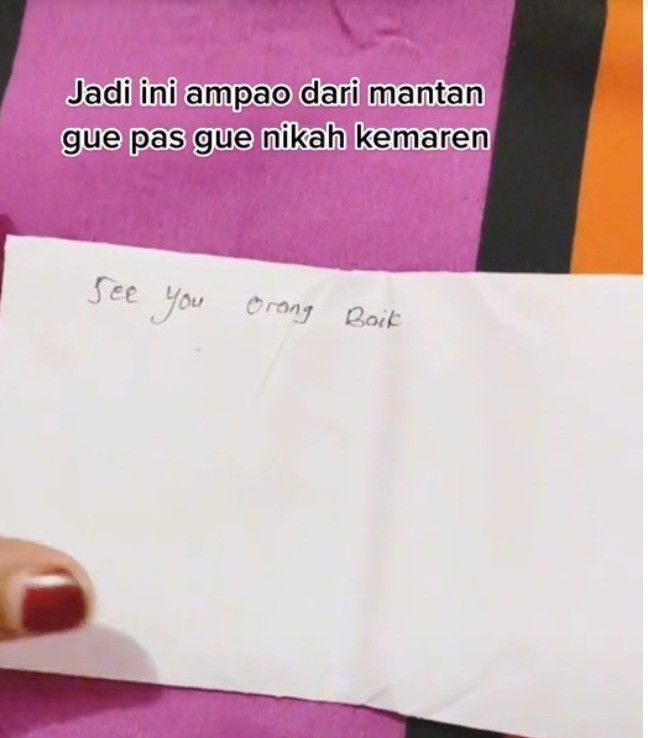 Jadi ini ampao dari mantan
gue pas gue nikah kemaren
See you orang Baik